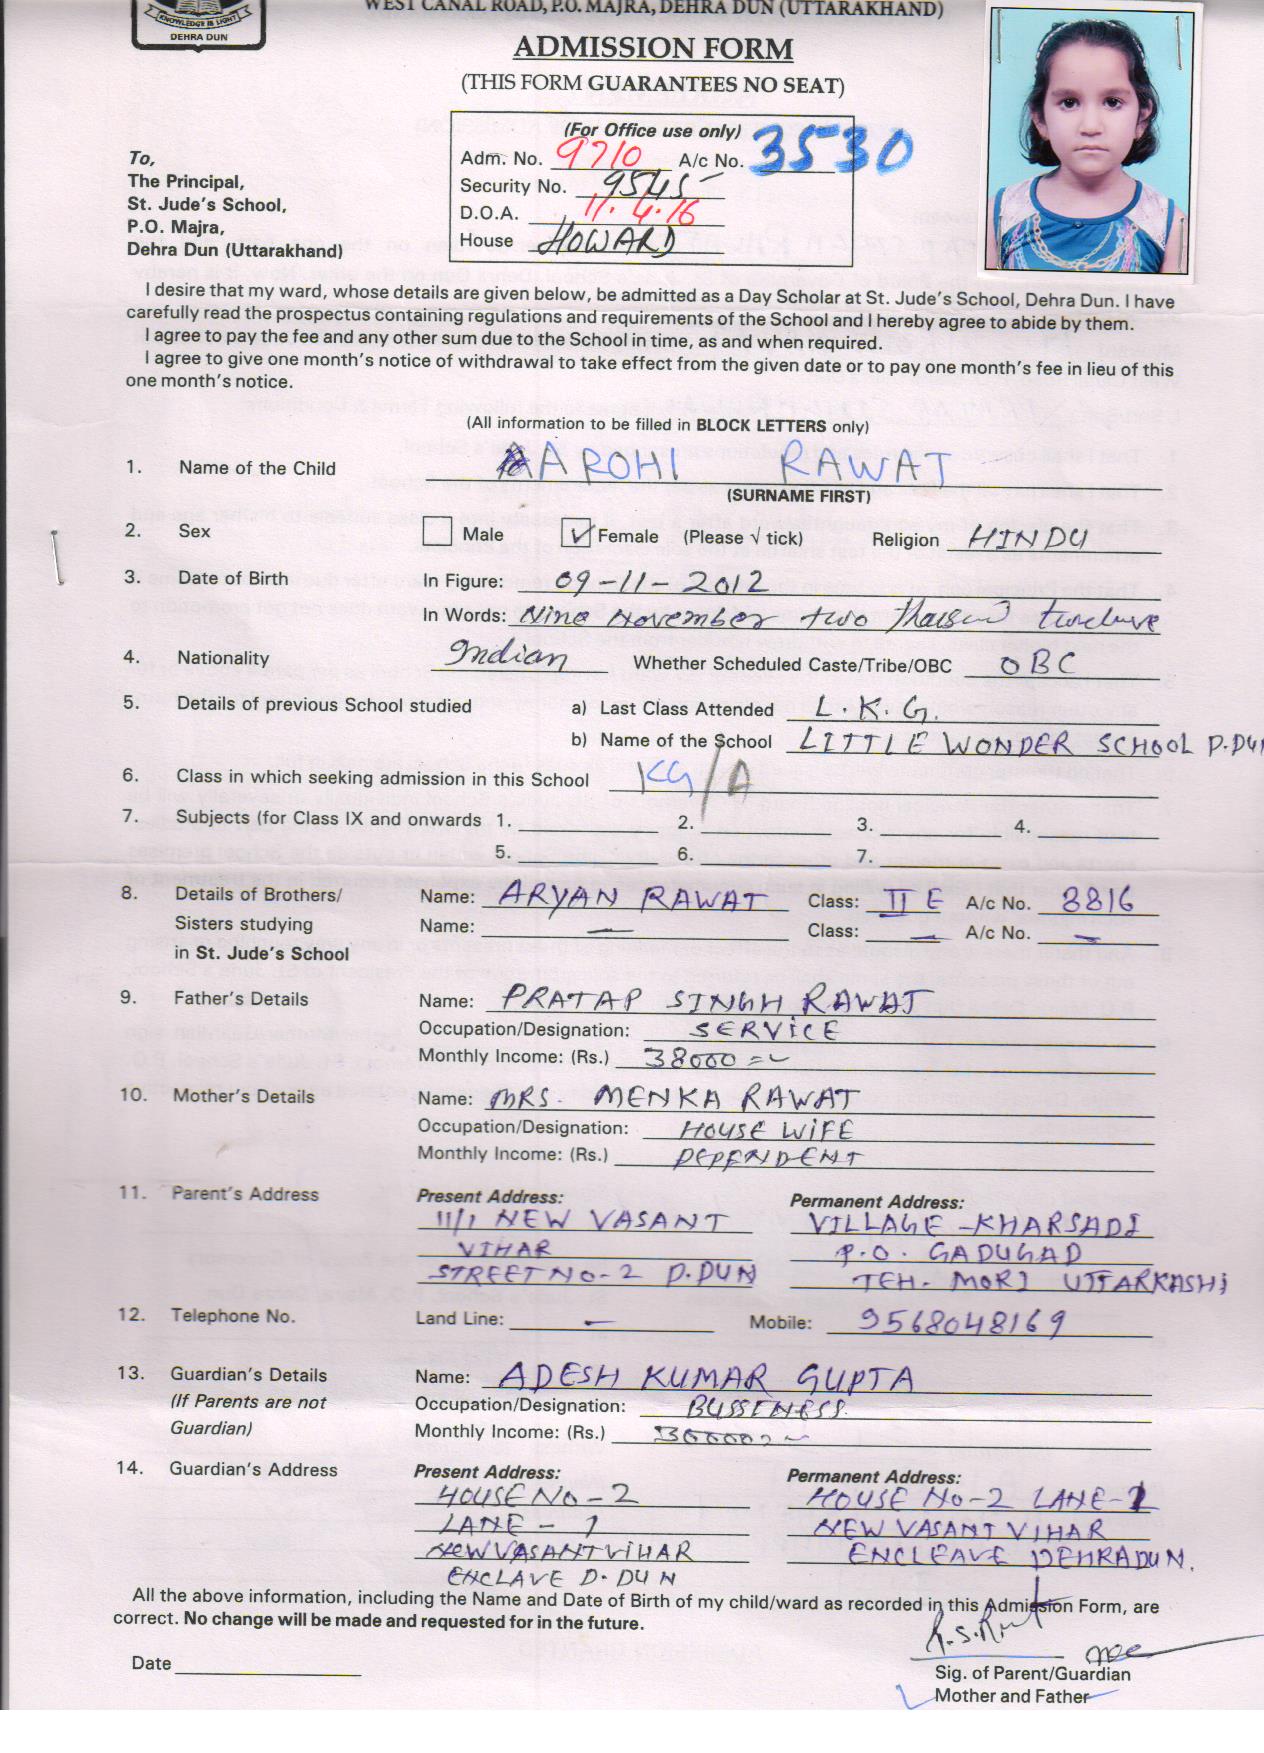 WEST CANAL ROAD, P.O. MAJRA, DEHRA DUN (UTTARAKHAND)
KNOWLEDGE IS LIGHT
DEHRA DUN
ADMISSION FORM
(THIS FORM GUARANTEES NO SEAT)
(For Office use only)
Adm. No. 9710 A/c No. 3530
Security No. 9545
D.O.A. 11.4.16
House HOWARD
To,
The Principal,
St. Jude's School,
P.O. Majra,
Dehra Dun (Uttarakhand)
I desire that my ward, whose details are given below, be admitted as a Day Scholar at St. Jude's School, Dehra Dun. I have
carefully read the prospectus containing regulations and requirements of the School and I hereby agree to abide by them.
I agree to pay the fee and any other sum due to the School in time, as and when required.
I agree to give one month's notice of withdrawal to take effect from the given date or to pay one month's fee in lieu of this
one month's notice.
(All information to be filled in BLOCK LETTERS only)
1. Name of the Child AAROHI RAWAT
(SURNAME FIRST)
2. Sex Male ✓ Female (Please √ tick) Religion HINDU
3. Date of Birth In Figure: 09-11-2012
In Words: Nine November two thousand twelve
4. Nationality Indian Whether Scheduled Caste/Tribe/OBC OBC
5. Details of previous School studied a) Last Class Attended L.K.G.
b) Name of the School LITTLE WONDER SCHOOL D.DUN
6. Class in which seeking admission in this School KG/A
7. Subjects (for Class IX and onwards 1. 2. 3. 4.
5. 6. 7.
8. Details of Brothers/ Name: ARYAN RAWAT Class: II E A/c No. 8816
Sisters studying Name: — Class: — A/c No. —
in St. Jude's School
9. Father's Details Name: PRATAP SINGH RAWAT
Occupation/Designation: SERVICE
Monthly Income: (Rs.) 38000=
10. Mother's Details Name: MRS. MENKA RAWAT
Occupation/Designation: HOUSE WIFE
Monthly Income: (Rs.) DEPENDENT
11. Parent's Address Present Address: Permanent Address:
11/1 NEW VASANT VILLAGE - KHARSADI
VIHAR P.O. GADUGAD
STREET NO-2 D.DUN TEH- MORI UTTARKASHI
12. Telephone No. Land Line: — Mobile: 9568048169
13. Guardian's Details Name: ADESH KUMAR GUPTA
(If Parents are not Occupation/Designation: BUSSENESS.
Guardian) Monthly Income: (Rs.)
14. Guardian's Address Present Address: Permanent Address:
HOUSE NO-2 HOUSE NO-2 LANE-1
LANE - 1 NEW VASANT VIHAR
NEW VASANT VIHAR ENCLEAVE DEHRADUN.
ENCLAVE D.DUN
All the above information, including the Name and Date of Birth of my child/ward as recorded in this Admission Form, are
correct. No change will be made and requested for in the future.
Date
Sig. of Parent/Guardian
Mother and Father